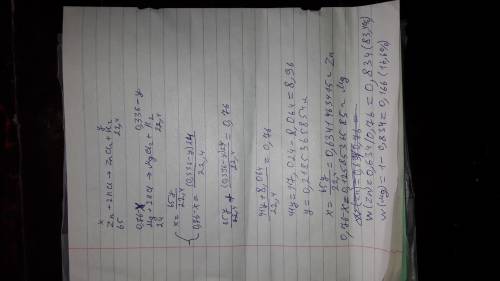 x y
Zn + 2HCl → ZnCl₂ + H₂
65 22,4
0,76-x 0,336-y
Mg + 2HCl → MgCl₂ + H₂
24 22,4
{ x = 65y/22,4
0,76-x = (0,336-y)24/22,4
65y/22,4 + (0,336-y)24/22,4 = 0,76
41y+8,064/22,4 = 0,76
41y = 17,024 - 8,064 = 8,96
y = 0,2185365854 л
x = 65y/22,4 = 0,6341463415 г Zn
0,76-x = 0,1258536585 г Mg
W(Zn) = 0,634/0,76 = 0,834 (83,4%)
W(Mg) = 1 - 0,834 = 0,166 (16,6%)